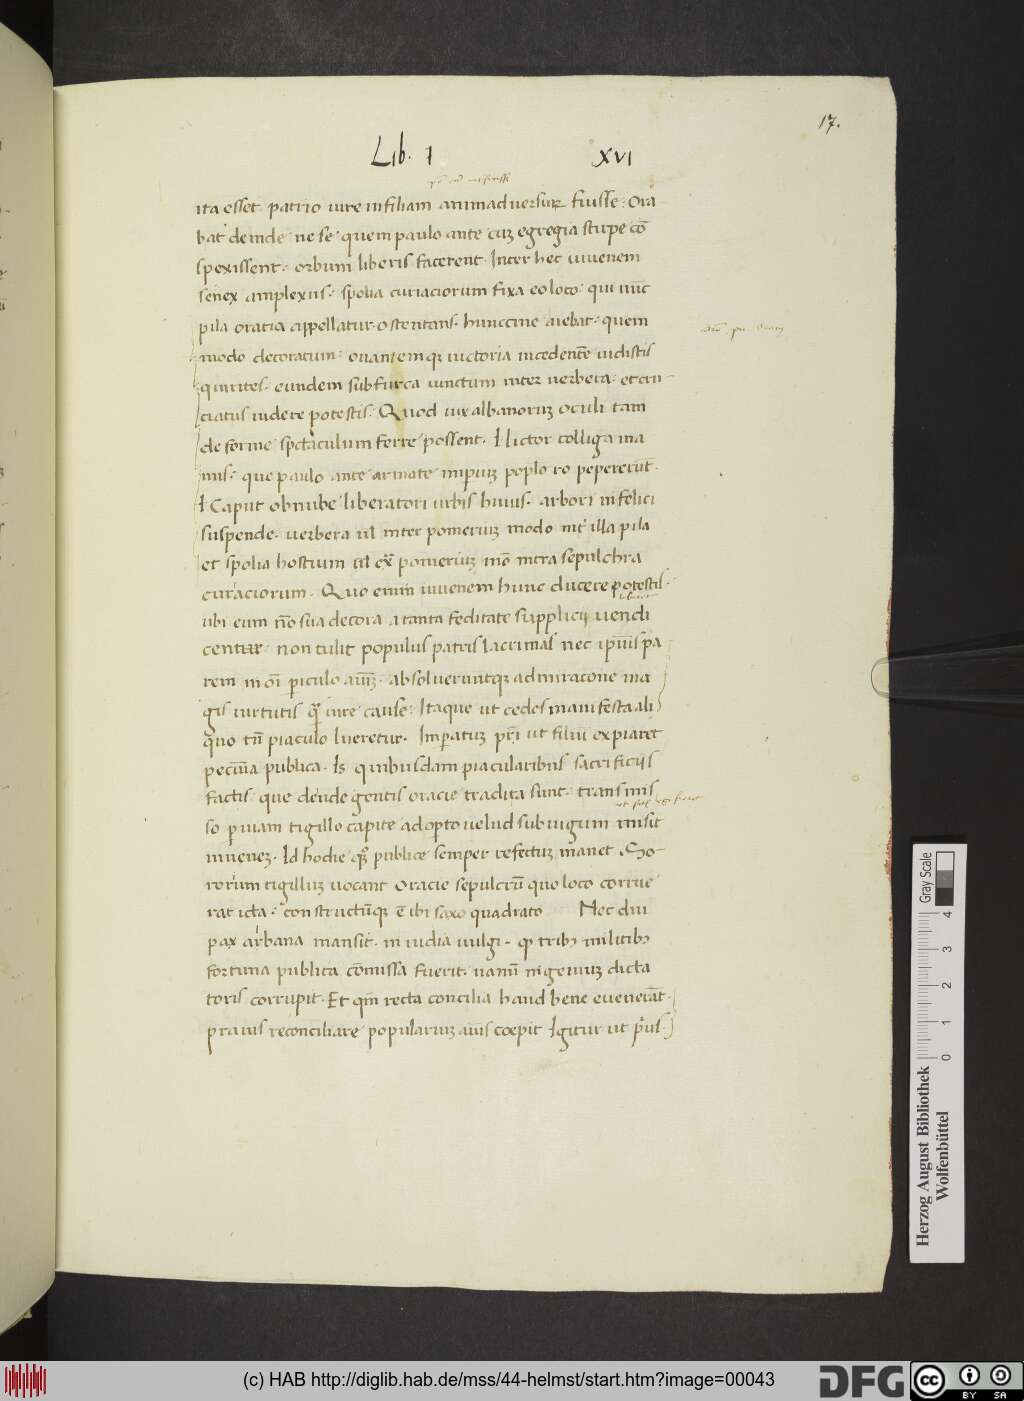 17.
Lib. I XVI
ita esset. patrio iure in filiam animadversurū fuisse. Ora
bat deinde ne se quem paulo ante cuȝ egregia stirpe cō
spexissent. orbum liberis facerent. Inter hec iuvenem
senex amplexus. spolia curiaciorum fixa eo loco. qui nūc
pila oracia appellatur. ostentans. hunccine aiebat. quem
modo decoratum. ovantemqȝ victoria incedentē vidistis
quirites. eundem sub furca vinctum inter verbera. et cru
ciatus videre potestis. Quod vix albanoruȝ oculi tam
deforme spectaculum ferre possent. I lictor colliga ma
nus. que paulo ante armate imperiuȝ poplo ro pepererūt.
I Caput obnube liberatori urbis huius. arbori infelici
suspende. verbera vl inter pomeriuȝ modo intͬ illa pila
et spolia hostium vl exͣ pomeriuȝ mō intra sepulchra
curiaciorum. Quo enim iuvenem hunc ducere potestis.
ubi eum nō sua decora a tanta feditate supplicii vendi
centur. non tulit populus patris lacrimas nec ipsius pa
rem in oī periculo aīuȝ. absolveruntqȝ admiracone ma
gis virtutis qͣ iure cause. Itaque ut cedes manifesta ali
quo tn̄ piaculo lueretur. Imperatuȝ pr̄i ut filiū expiaret
pecūia publica. Is quibusdam piacularibus sacrificiis
factis. que deīde genti oracie tradita sunt. transmis
so per viam tigillo capite adoperto velud sub iugum misit
iuveneȝ. Id hodie qͦqȝ publice semper refectuȝ manet. So
rorium tigilluȝ vocant Oracie sepulcrū quo loco corrue
rat icta. constructūqȝ ē ibi saxo quadrato Nec diu
pax albana mansit. invidia vulgi. qͦ tribȝ militibȝ
fortuna publica cōmissa fuerit. vanū ingeniuȝ dicta
toris corrupit. Et qm̄ recta concilia haud bene evenerāt.
pravis reconciliare populariuȝ aīos coepit Igitur ut pͥus.
Herzog August Bibliothek
Wolfenbüttel
Gray Scale
0 1 2 3 4
(c) HAB http://diglib.hab.de/mss/44-helmst/start.htm?image=00043
DFG
cc BY SA